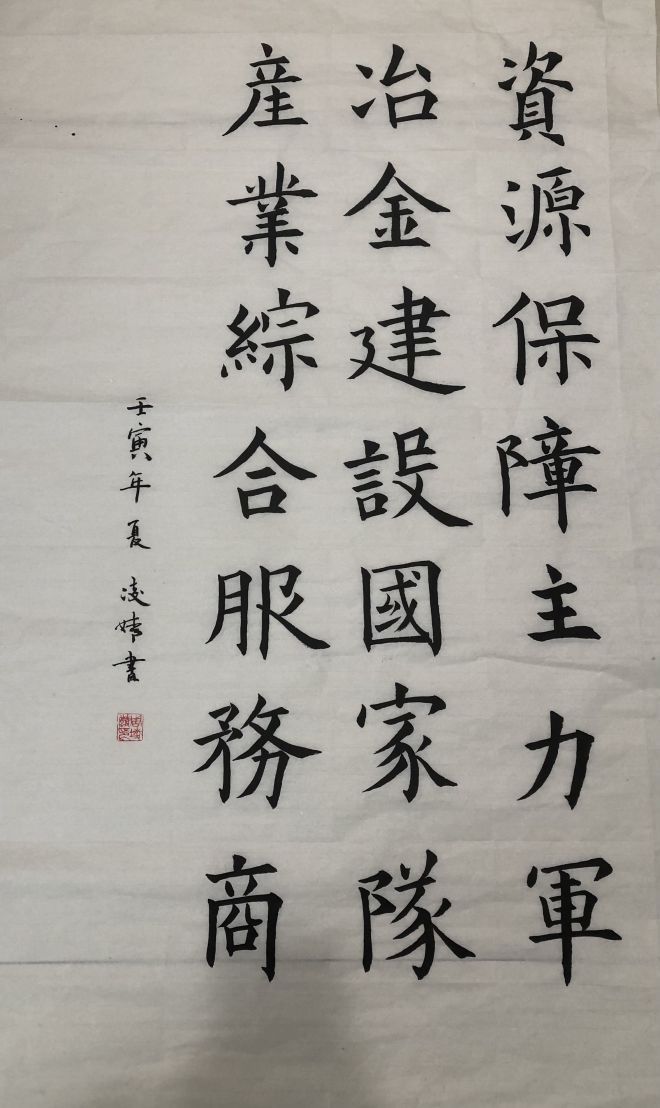 資源保障主力軍
冶金建設國家隊
産業綜合服務商
壬寅年夏 凌婧書